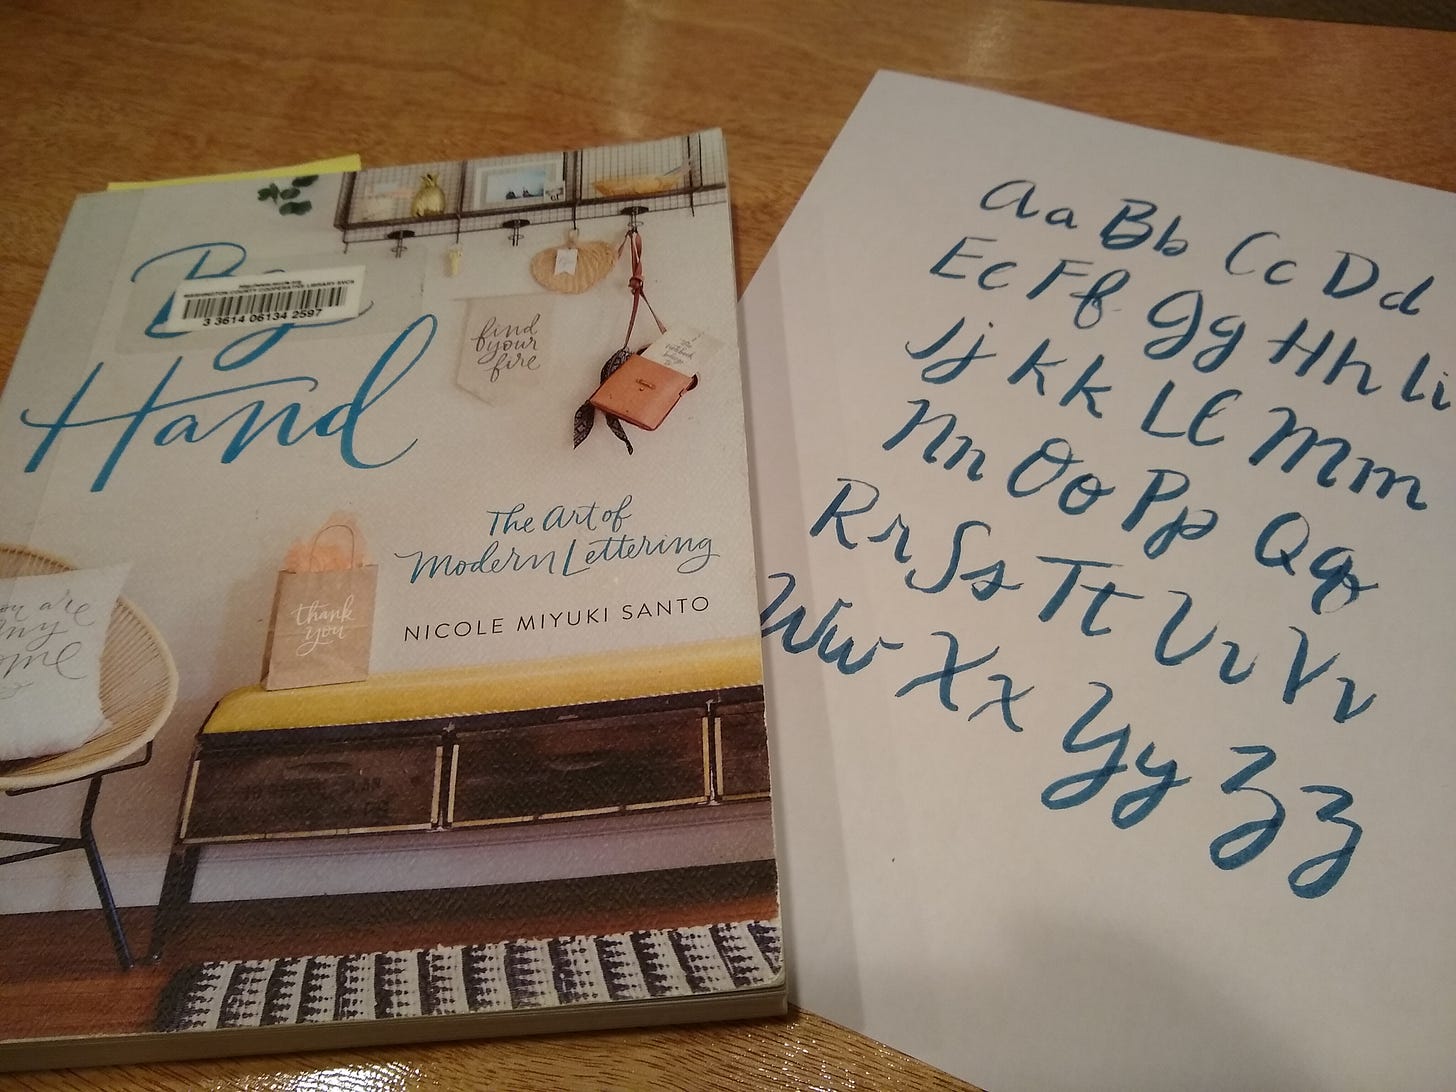 By
WASHINGTON COUNTY COOPERATIVE LIBRARY SVCS
3 3614 06134 2597
Hand
find
your
fire
The Art of
Modern Lettering
NICOLE MIYUKI SANTO
thank
you
you are
my
home
Aa Bb Cc Dd
Ee Ff Gg Hh Ii
Jj Kk Ll Mm
Nn Oo Pp Qq
Rr Ss Tt Uu Vv
Ww Xx Yy Zz